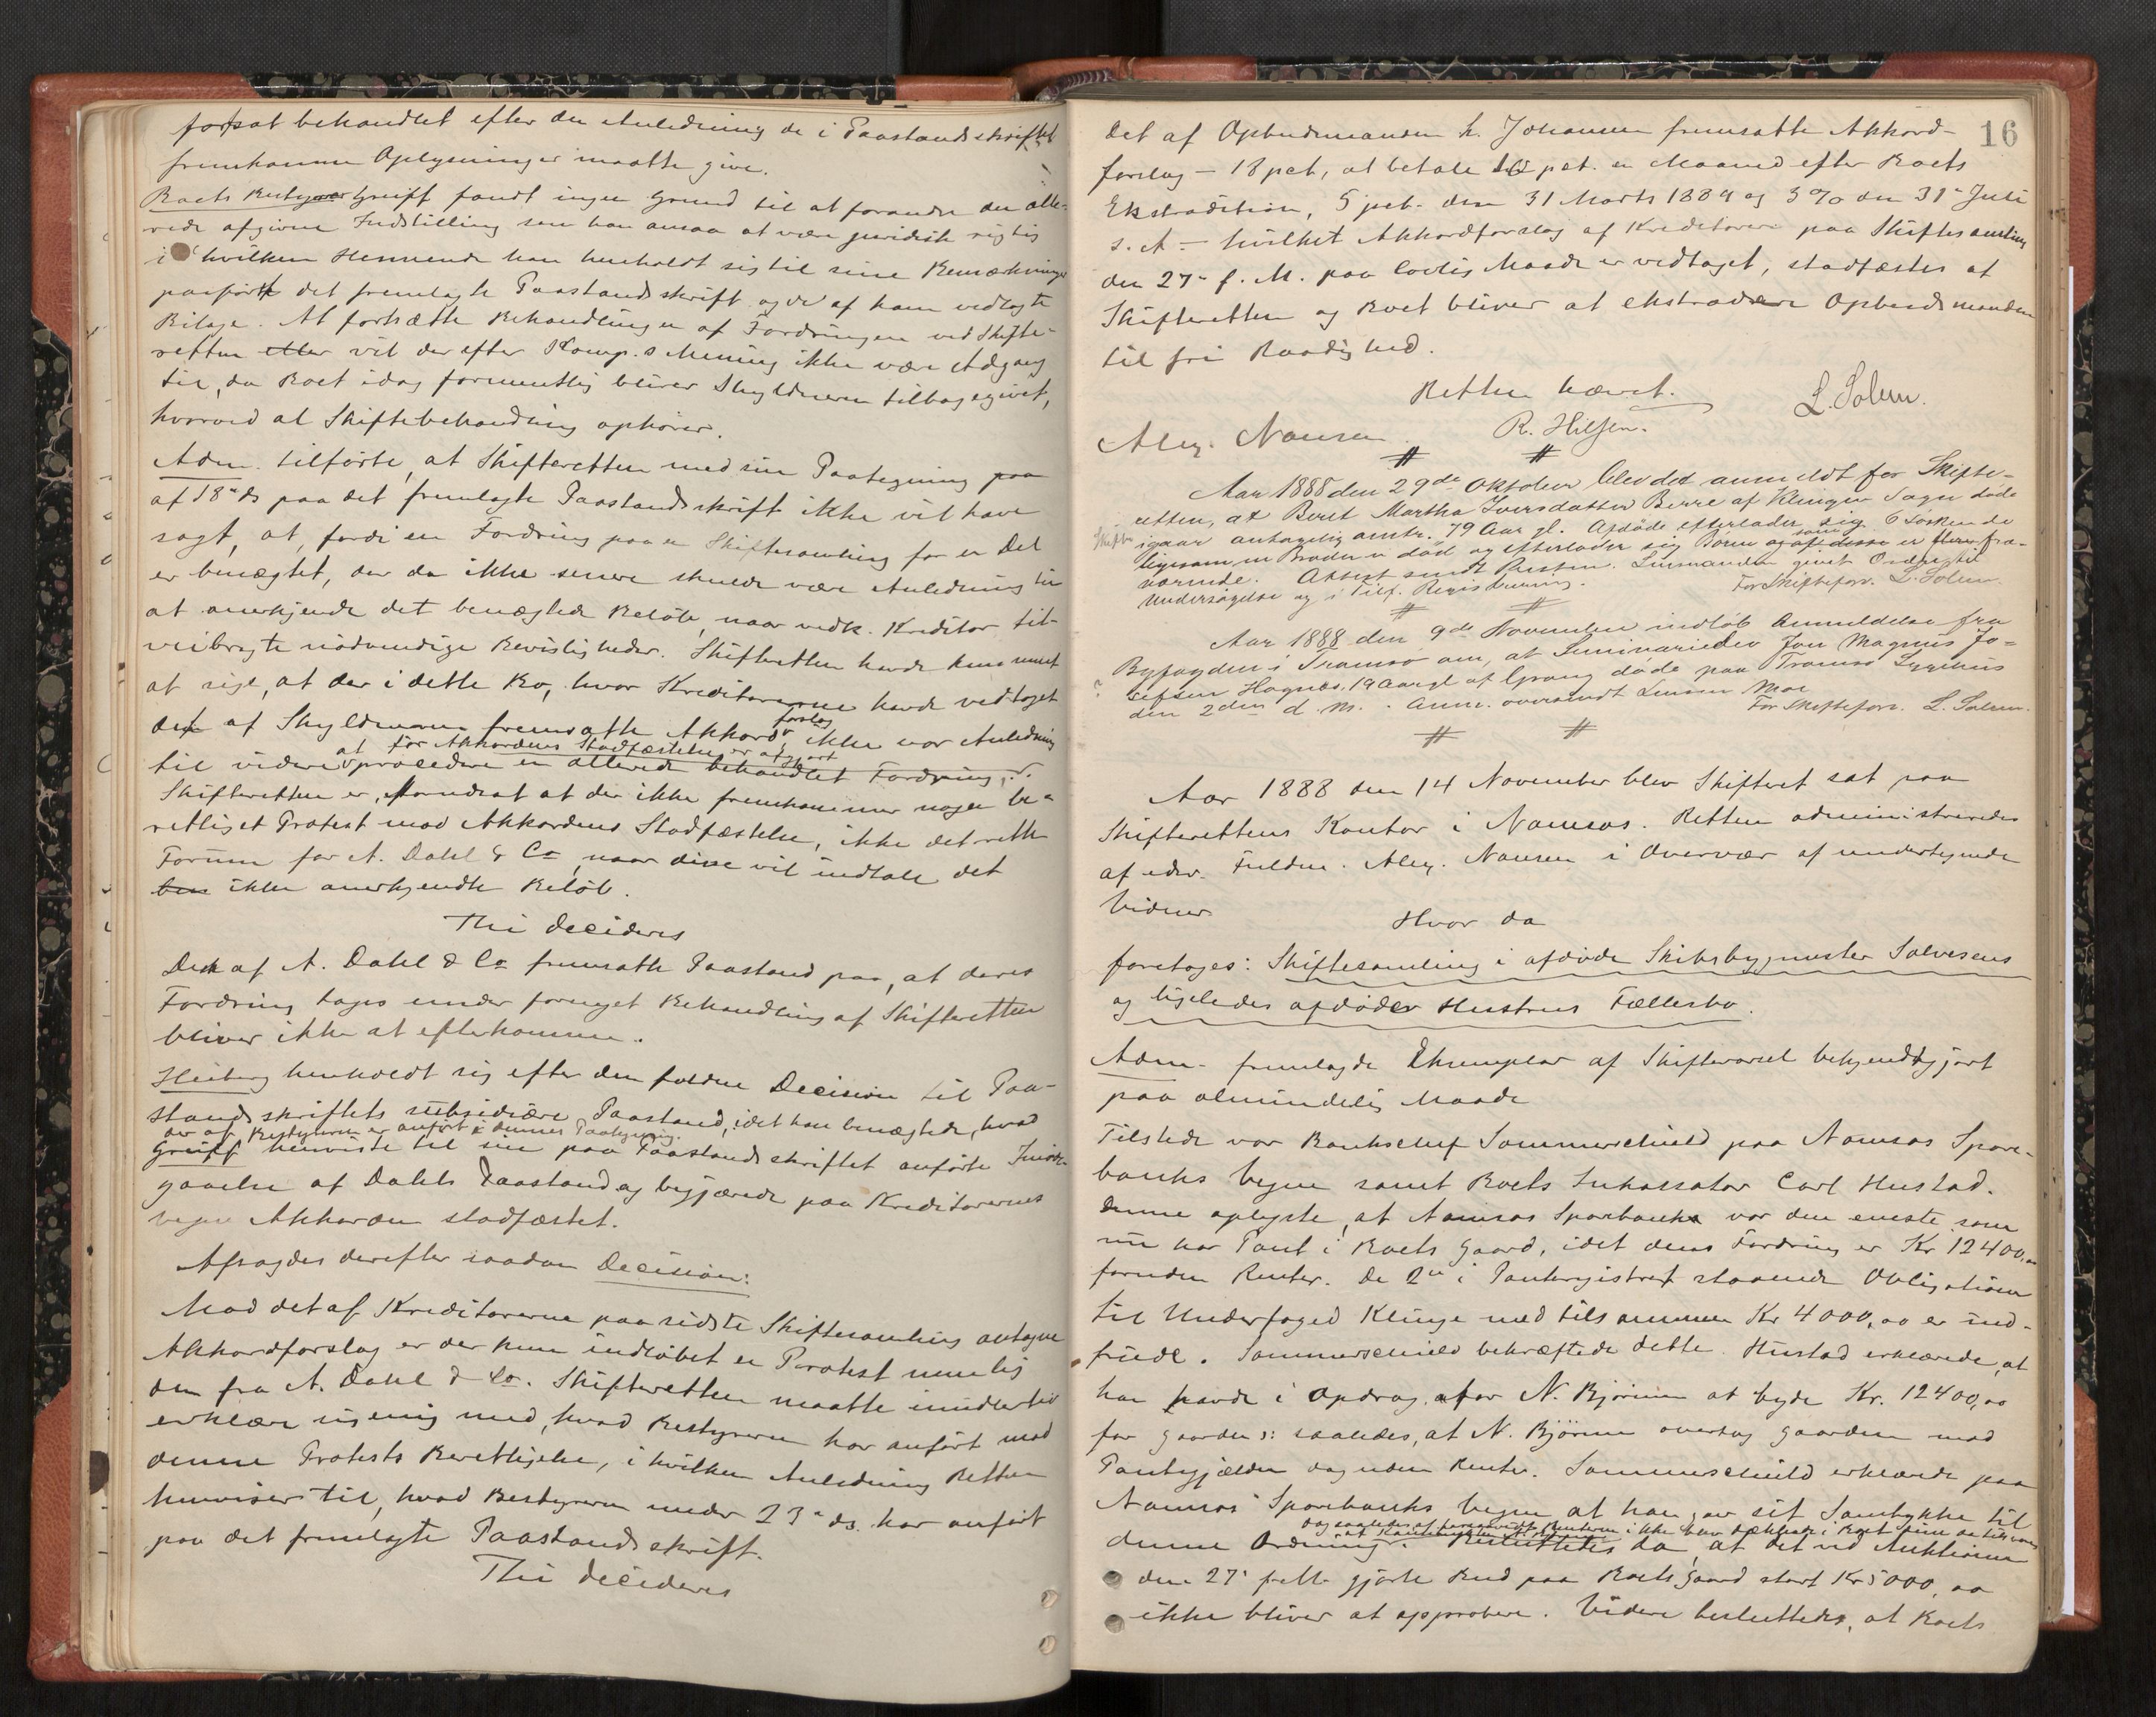 forsat behandlet efter den Anledning de i Paastandsskriftet
fremkomne Oplysninger maatte give.
Boets Bestyrer Greiff fandt ingen Grund til at forandre den alle-
rede afgivne Indstilling som han ansaa at være juridisk rigtig
i hvilken Henseende han henholdt sig til sine Bemærkninger
paaført det fremlagte Paastandsskrift og de af ham vedlagte
Bilage. At fortsætte Behandlingen af Fordringen ved Skifte-
retten eller vil der efter Komp.s Mening ikke være Adgang
til, da Boet idag formentlig bliver Skyldneren tilbagegivet,
hvorved al Skiftebehandling ophører.
Adm. tilførte, at Skifteretten med sin Paategning paa
af 18de ds paa det fremlagte Paastandsskrift ikke vil have
sagt, at, fordi en Fordring paa en Skiftesamling for en Del
er benægtet, der da ikke senere skulde være Anledning til
at anerkjende det benægtede Beløb, naar vedk. Kreditor til-
veibragte nødvendige Bevisligheder. Skifteretten havde kun ment
at sige, at der i dette Bo, hvor Kreditorerne havde vedtaget
det af Skyldneren fremsatte Akkord forslag ikke var Anledning
at før Akkordens Stadfæstelse er afgjort
til videre procedere en allerede behandlet Fordring.
Skifteretten er, forudsat at der ikke fremkommer nogen be-
rettiget Protest mod Akkordens Stadfæstelse, ikke det rette
Forum for A. Dahl & Co naar disse vil indtale det
ikke anerkjendte Beløb.
Thi decideres
Den af A. Dahl & Co fremsatte Paastand paa, at deres
Fordring tages under fornyet Behandling af Skifteretten
bliver ikke at efterkomme.
Heiberg henholdt sig efter den faldne Decision til Paa-
standsskriftets subsidiære Paastand, idet han benægtede, hvad
der af Bestyreren er anført i dennes Paategning.
Greiff henviste til sin paa Paastandsskriftet anførte Imøde-
gaaelse af Dahls Paastand og begjærede paa Kreditorernes
vegne Akkorden stadfæstet.
Afsagdes derefter saadan Decision:
Mod det af Kreditorerne paa sidste Skiftesamling antagne
Akkordforslag er der kun indløbet en Protest nemlig
den fra A. Dahl & Co. Skifteretten maatte imidlertid
erklære sig enig med, hvad Bestyreren har anført mod
denne Protests Berettigelse, i hvilken Anledning Retten
henviser til, hvad Bestyreren under 23de ds. har anført
paa det fremlagte Paastandsskrift.
Thi decideres
16
Det af Opbudsmanden L. Johansen fremsatte Akkord-
forslag – 18 pct, at betale 10 pct. en Maaned efter Boets
Ekstradition, 5 pct. den 31 Marts 1889 og 3 % den 31te Juli
s. A. – hvilket Akkordforslag af Kreditorerne paa Skiftesamling
den 27de f. M. paa lovlig Maade er vedtaget, stadfæstes af
Skifteretten og Boet bliver at ekstradere Opbudsmanden
til fri Raadighed.
Retten hævet.
Alex. Nansen R. Hilsen. L. Solem.
Aar 1888 den 29de Oktober blev det anmeldt for Skifte-
retten, at Beret Martha Iversdatter Berre af Klingen Sogn døde
igaar antagelig omtr. 79 Aar gl. Afdøde efterlader sig 6 Søskende
ligesom en Broder er død og efterlader sig Børn og af disse er flere fra-
værende. Attest sendt Presten. Lensmanden givet Ordre til
Undersøgelse og i Tilf. Registrering. For Skifteforv. L. Solem.
Aar 1888 den 9de November indløb Anmeldelse fra
Byfogden i Tromsø om, at Seminarieelev Jon Magnus Jo-
sefsen Hognes, 19 Aar gl af Grong døde paa Tromsø Sygehus
den 2den d. M. Anm. oversendt Lensm Moe
For Skifteforv. L. Solem.
Aar 1888 den 14 November blev Skifteret sat paa
Skifterettens Kontor i Namsos. Retten administreredes
af edsv. Fuldm. Alex. Nansen i Overvær af undertegnede
Vidner
Hvor da
foretoges: Skiftesamling i afdøde Skibsbygmester Salvesens
og ligeledes afdøde Hustrus Fællesbo.
Adm. fremlagde Eksemplar af Skiftevarsel bekjendtgjort
paa almindelig Maade
Tilstede var Bankchef Sommerschield paa Namsos Spare-
banks Vegne samt Boets Inkassator Carl Hustad.
Denne oplyste, at Namsos Sparebank var den eneste som
nu har Pant i Boets Gaard, idet dens Fordring er Kr 12400,00
foruden Renter. De 2de i Panteregistret staaende Obligationer
til Underfoged Klinge med tilsammen Kr 4000,00 er ind-
friede. Sommerschield bekræftede dette. Hustad erklærede, at
han havde i Opdrag for N. Bjørum at byde Kr. 12400,00
for Gaarden ɔ: saaledes, at N. Bjørum overtog Gaarden mod
Pantegjælden dog uden Renter. Sommerschield erklærede paa
Namsos Sparebanks Vegne at han gav sit Samtykke til
denne Ordning. Besluttedes da, at det ved Auktionen
den 27de gjorte Bud paa Boets Gaard stort Kr 5000,00
ikke bliver at approbere. Videre besluttedes, at Boets